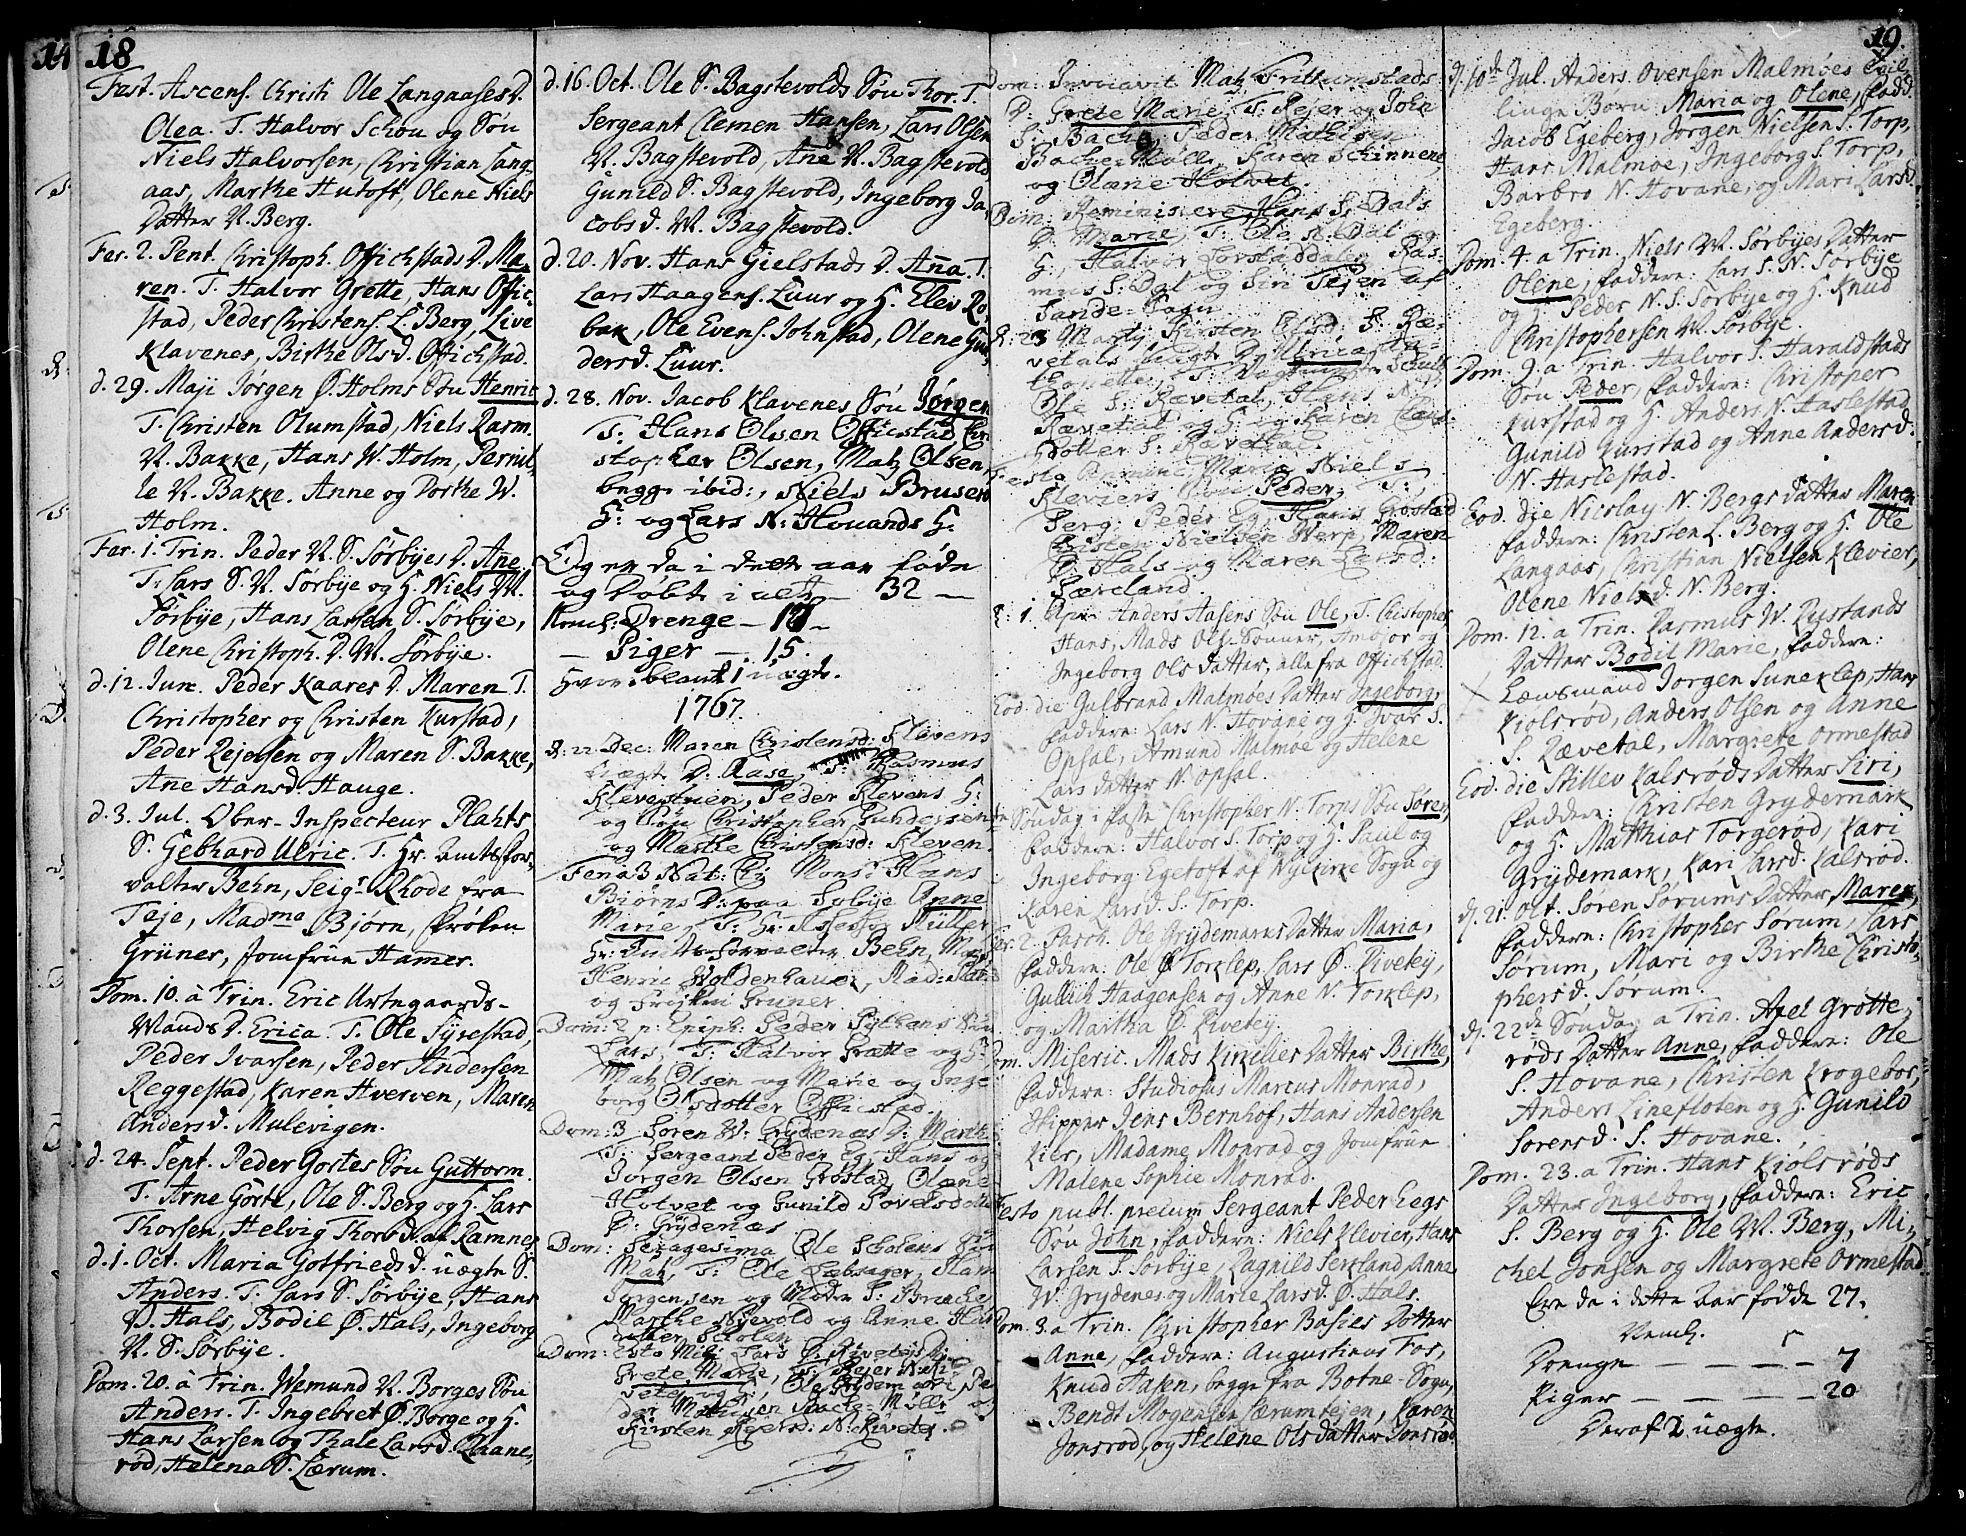 18
Fest. Ascens. Christi Ole Langaases D.
Olea. T. Halvor Schou og Søn
Niels Halvorsen, Christian Lang-
aas, Marthe Hutoft, Olene Niels
Datter N. Berg.
Fer. 2. Pent. Christoph. Offichstads D. Ma-
ren. T. Halvor Grette, Hans Offic-
stad, Peder Christens. L. Berg, Live
Klavenes, Birthe Olsd. Offichstad.
d. 29. Maji Jørgen Ø. Holms Søn Henric
T. Christen Olumstad, Niels Rasm.
N. Bakke, Hans W. Holm, Pernil-
le N. Bakke. Anne og Dorthe W.
Holm.
Fer. 1. Trin. Peder N. S. Sørbyes D. Ane.
T. Lars S. N. Sørbye og H. Niels W.
Sørbye, Hans Larsen S. Sørbye,
Olene Christoph. D. W. Sørbye.
d. 12. Jun. Peder Kaares D. Maren T.
Christopher og Christen Kurstad,
Peder Rejersen og Maren S. Bakke,
Ane Hansd Hauge.
d. 3. Jul. Ober-Inspecteur Plahts
S. Gebhard Ulric. T. Hr. Amtsfor-
valter Behn, Seigr. Rhode fra
Teje, Madme Bjørn, Frøken
Grüner, Jomfrue Hamer.
Dom. 10. à Trin. Eric Urtegaards-
Mands D. Erica. T. Ole Syrestad,
Peder Ivarsen, Peder Andersen
Reggestad, Karen Hverven, Maren
Andersd. Mulevigen.
d. 24. Sept. Peder Gortes Søn Guttorm.
T. Arne Gorte, Ole S. Berg og H. Lars
Thorsen, Helvig Thorsd. af Ramnes
d. 1. Oct. Maria Gotfriedsd. uægte S.
Anders. T. Lars S. Sørbye, Hans
Ø. Hals, Bodil Ø. Hals, Ingeborg
N. S. Sørbye.
Dom. 20. à Trin. Wemund N. Borges Søn
Anders. T. Ingebret Ø. Borge og H.
Hans Larsen og Thale Larsd. Claane-
rød, Helena S. Lærum.
d. 16. Oct. Ole S. Bagstevolds Søn Thor. T.
Sergeant Clemen Hansen, Lars Olsen
N. Bagstevold, Ane N. Bagstevold
Gunild S. Bagstevold, Ingeborg Ja-
cobsd. W. Bagstevold.
d. 20. Nov. Hans Gielstads D. Anna T.
Lars Haagens. Luur og H. Elev Ro-
bak, Ole Evens. Johnstad, Olene Gun-
dersd. Luur.
d. 28. Nov. Jacob Klavenes Søn Jørgen
T: Hans Olsen Officstad Chri
stopher Olsen, Matz Olsen,
begge ibid:, Niels Brusers
H: og Lars N: Hovands H:
Og er da i dette aar fødde
og Døbt i alt — 32 —
Neml: Drenge — 17 —
— Piger — 15.
Hvoriblant 1 uægte.
1767.
d: 22 Dec: Maren Christensd: Klevens
uægte D: Aase, T: Rasmus
Klevestuen, Peder Klevens H:
og Christopher Gundersen
og Marthe Christensd: Kleven.
Feria 3 Nat: Chr: Mons: Hans
Biørns D: paa Solbye Anne
Marie, T: Hr: Assessor Müller
Hr: Amtsforvalter Behn, Mons:
Henric Woldenhauer, Mad: Plat
og Frøiken Grüner
Dom: 2 p: Epiph: Peder Pyttens Søn
Lars, T: Halvor Grette og H:
Matz Olsen og Marie og Inge
borg Olsdotter Officstad.
Dom: 3 Søren W: Grydenæs D: Marthe
T: Sergeant Peder Eg, Hans og
Jørgen Olsen Grostad Olæne
Holvet og Gunild Povelsdotter
Ø: Grydenæs
Dom: Sexagesima Ole Scholens Søn
Matz, T: Ole Læbsager, Ham
Jørgensen og Moder S: Brecke
Marthe Nyevold og Anne Hans
datter Scholen
Dom: Esto Mihi Lars Ø: Rivetejs D:
Grete Marie, T: Rejer Niel:
vetej og H:, Ole Grydem ark, Pe
der Mathisen Bache-Mølle
Kirsten Rejersd: N: Rivetej.
Dom: Invocavit Matz Frittumstads
D: Grete Marie, T. Rejer og John
S: Bache Peder Mathisen
Bache-Mølle, Karen Schinnene,
og Olæne Holvet.
Dom: Reminiscere Hans S. Dals
D. Marie, T: Ole N. Dal og
H:, Halvor Forstaddalen Ras-
mus S: Dal og Siri Tejen af
Sande-Sogn
d: 23 Martj Kirsten Olsd: S. Ræ-
vetals uægte D. Ulrica Ca-
tharine, T:
Ole S: Rævetal, Hans N:
Rævetal og H: og Karen Claus
dotter S: Rævetal.
Festo Annunc: Mariæ Niels
Kleviers Søn Peder T:
Serg: Peder Eg, Hans Grostad
Christen Nielsen Werp, Maren
Ø. Hals og Maren Larsd:
Særeland.
d: 1. Apr. Anders Aasens Søn Ole, T. Christopher
Hans, Mads Ols-Sønner, Ambjor og
Ingeborg Ols Datter, alle fra Offichstad.
Eod. die Gulbrand Malmøes Datter Ingeborg,
Faddere: Lars N. Hovane og H. Ivar S.
Opsal, Amund Malmøe og Helene
Lars Datter N. Opsal.
Søndag i Faste Christopher N. Torps Søn Søren,
Faddere: Halvor S. Torp og H. Paul og
Ingeborg Egetoft af Nykirke Sogn og
Karen Larsd. S. Torp.
Fer. 2. Pasch. Ole Grydemarks Datter Maria,
Faddere: Ole Ø. Torklep, Lars Ø. Rivetej,
Gullich Haagensen og Anne N. Torklep,
og Martha Ø. Rivetej.
Dom. Miseric. Mads Kirkelies Datter Birthe,
Faddere: Studiosus Marcus Monrad,
Skipper Jens Bernhof, Hans Andersen
Kier, Madame Monrad og Jomfrue
Malene Sophie Monrad.
Festo publ. precum Sergeant Peder Eegs
Søn John, Faddere: Niels Klevier, Hans
Larsen S. Sørbye, Ragnild Serkland, Anne
W. Grydenes og Marie Larsd. Ø. Hals.
Dom. 3. a Trin. Christopher Basies Datter
Anne, Faddere: Augustinus Fos,
Knud Aasen, begge fra Botne-Sogn,
Bendt Mogensen Lærumtejen, Karen
Jonsrød, og Helene Ols Datter Jonsrød
19.
d. 10de Jul. Anders Ovensen Malmøes Tvil-
linge Børn Maria og Olene, Fadd.
Jacob Egeberg, Jørgen Nielsen S. Torp,
Hans Malmøe, Ingeborg S. Torp,
Barbro N. Hovane, og Mari Larsd.
Egeberg.
Dom. 4. a Trin. Niels W. Sørbyes Datter
Olene, Faddere: Lars S. N. Sørbye
og H. Peder N. S. Sørbye og H. Knud
Christophersen W. Sørbye.
Dom. 9. a Trin. Halvor S. Haraldstads
Søn Peder, Faddere: Christopher
Kurstad og H. Anders N. Haslestad
Gunild Kurstad og Anne Andersd.
N. Haslestad.
Eod. die Nicolay N. Bergs Datter Maren
Faddere: Christen L. Berg og H. Ole
Langaas, Christian Nielsen Klevier,
Olene Nielsd. N. Berg.
Dom. 12. a Trin. Rasmus W. Rustands
Datter Bodil Marie, Faddere:
Lensmand Jørgen Suneklep, Hans
Kiolsrød, Anders Olsen og Anne
S. Rævetal, Margrete Ormestad
Eod. die Stillev Kalsrøds Datter Siri,
Faddere: Christen Grydemark
og H. Matthias Torgerød, Kari
Grydemark, Kari Larsd. Kalsrød.
d. 21. Oct. Søren Sørums Datter Maren,
Faddere: Christopher Sørum, Lars
Sørum, Mari og Birthe Christo-
phersd. Sørum.
d. 22de Søndag a Trin. Axel Grøtte-
røds Datter Anne, Faddere: Ole
S. Hovane, Christen Krogebor,
Anders Linefloten og H. Gunild
Sørensd. S. Hovane.
Dom. 23. a Trin. Hans Kiølsrøds
Datter Ingeborg, Faddere: Eric
S. Berg og H. Ole W. Berg, Mi-
chel Jonsen og Margrete Ormestad
Ere da i dette Aar fødde 27.
Neml.
Drenge — — — — 7
Piger — — — — 20
Deraf 2 uægte.